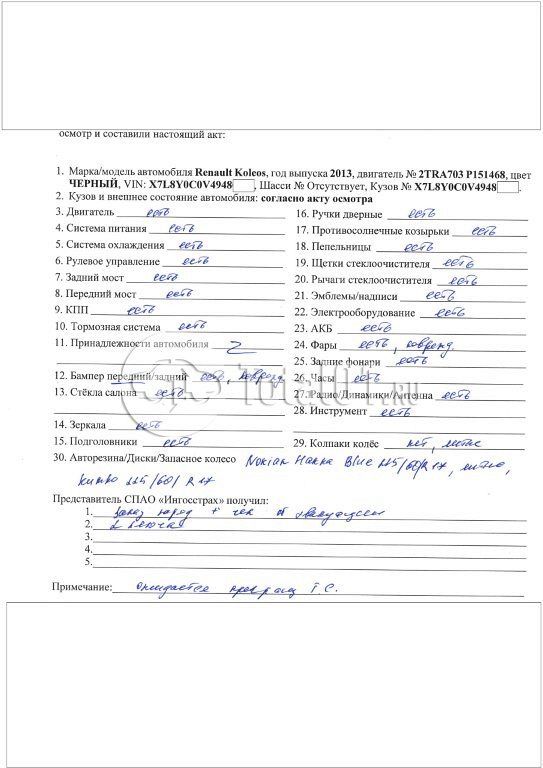 осмотр и составили настоящий акт:
1. Марка/модель автомобиля Renault Koleos, год выпуска 2013, двигатель № 2TRA703 P151468, цвет
ЧЕРНЫЙ, VIN: X7L8Y0C0V4948 , Шасси № Отсутствует, Кузов № X7L8Y0C0V4948 .
2. Кузов и внешнее состояние автомобиля: согласно акту осмотра
3. Двигатель есть
4. Система питания есть
5. Система охлаждения есть
6. Рулевое управление есть
7. Задний мост есть
8. Передний мост есть
9. КПП есть
10. Тормозная система есть
11. Принадлежности автомобиля
12. Бампер передний/задний есть, поврежд.
13. Стёкла салона есть
14. Зеркала есть
15. Подголовники есть
16. Ручки дверные есть
17. Противосолнечные козырьки есть
18. Пепельницы есть
19. Щетки стеклоочистителя есть
20. Рычаги стеклоочистителя есть
21. Эмблемы/надписи есть
22. Электрооборудование есть
23. АКБ есть
24. Фары есть, поврежд.
25. Задние фонари есть
26. Часы есть
27. Радио/Динамики/Антенна есть
28. Инструмент есть
29. Колпаки колёс нет, литые
30. Авторезина/Диски/Запасное колесо Nokian Hakka Blue 225/60/R17, литые,
Kumho 225/60/R17
Представитель СПАО «Ингосстрах» получил:
1. Заказ наряд + чек об эвакуации
2. 2 ключа
3.
4.
5.
Примечание: Ожидается Т.С.
Total01.RU